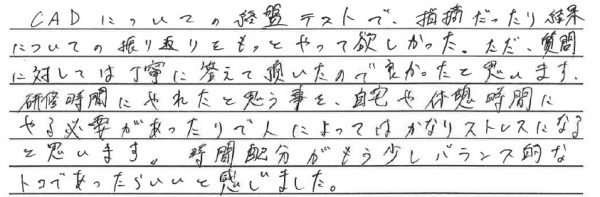 CADについての終盤テストで、指摘だったり結果
についての振り返りをもっとやって欲しかった。ただ、質問
に対しては丁寧に答えて頂いたので良かったと思います。
研修時間にやれたと思う事を、自宅や休憩時間に
やる必要があったりで人によってはかなりストレスになる
と思います。時間配分がもう少しバランス的な
トコであったらいいと感じました。